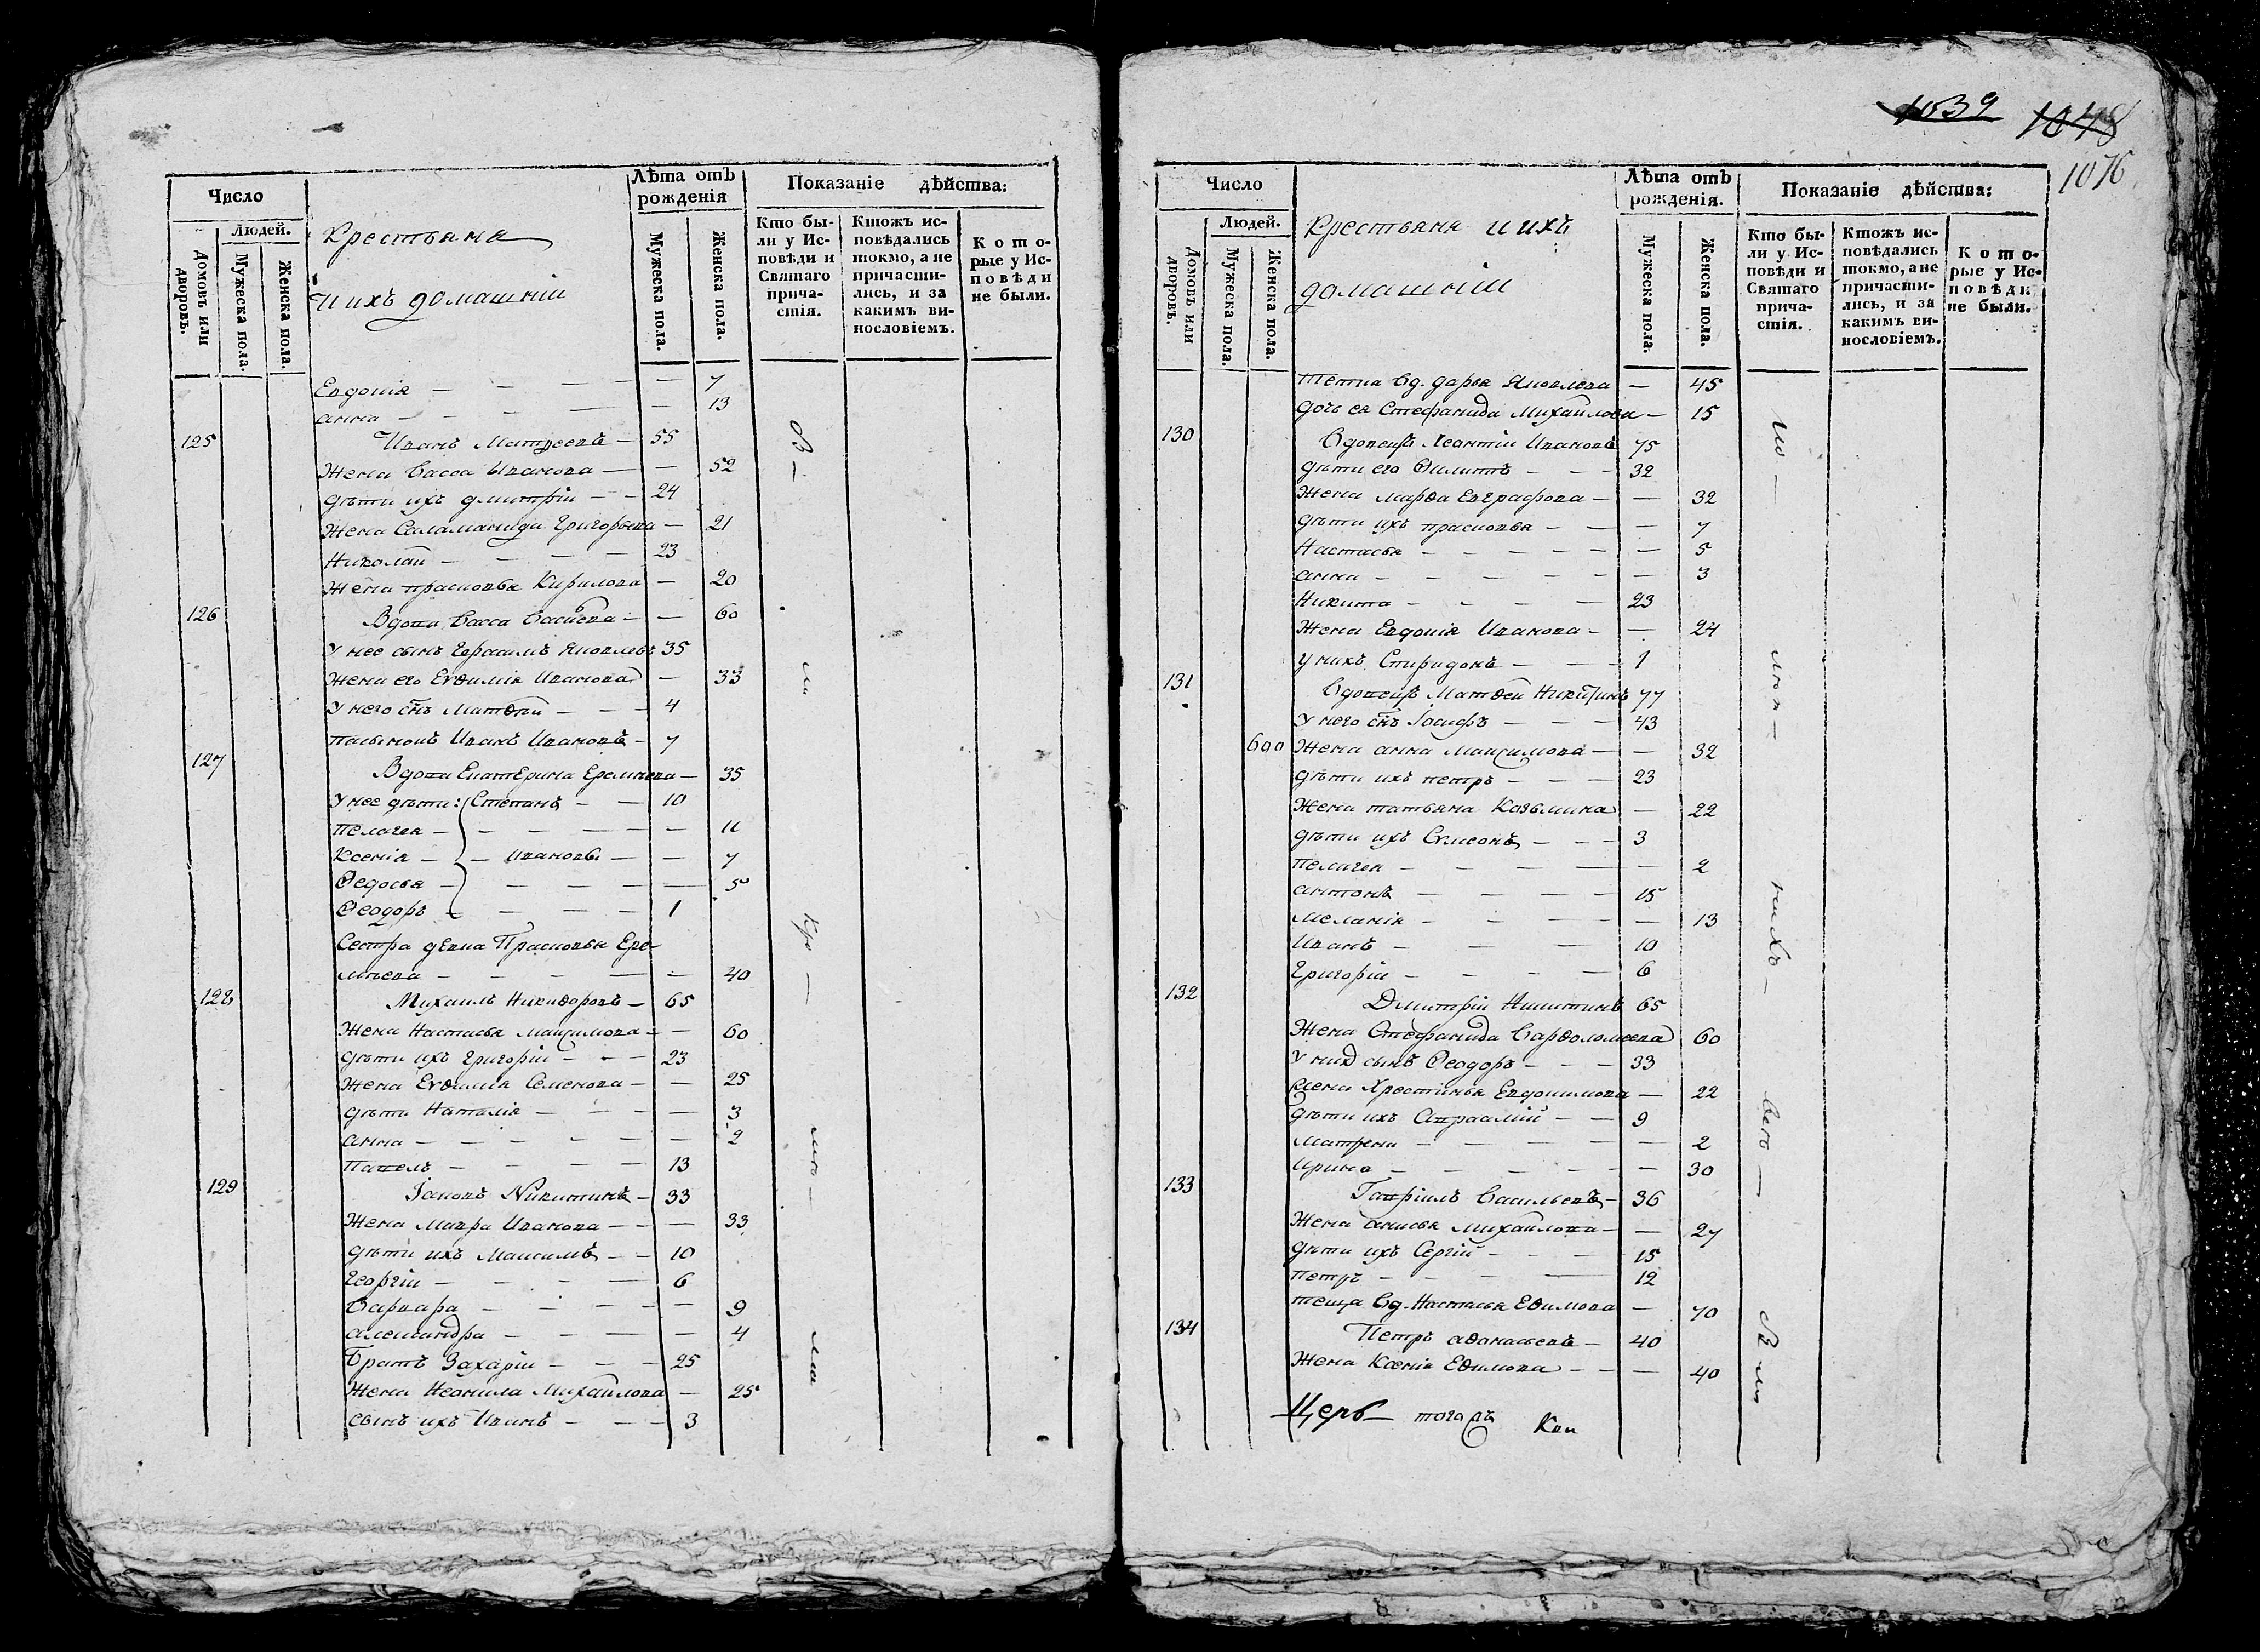 Число
Людей.
Домовъ или дворовъ.
Мужеска пола.
Женска пола.
Крестьяна
и ихъ домашніи
Лѣта отъ рожденія
Мужеска пола.
Женска пола.
Показаніе дѣйства:
Кто бы-
ли у Ис-
повѣди и
Святаго
прича-
стія.
Ктожъ ис-
повѣдались
токмо, а не
причасти-
лись, и за
какимъ ви-
нословіемъ.
К о т о-
рые у Ис-
п о в ѣ д и
не были.
Евдокія — — — — — 7
анна — — — — — 13
125 Иванъ Матвеевъ — 55
Жена Васса Иванова — — 52
дѣти ихъ дмитрій — — 24
Жена Саламанида Григорьева — 21
Николай — — — — 23
Жена прасковья Кирилова — 20
126 Вдова Васса Васильева — — 60
У нее сынъ Герасимъ Яковлевъ 35
Жена его Евѳимія Иванова — 33
У него сынъ Матѳѣй — — — 4
пасынокъ Иванъ Ивановъ — 7
127 Вдова Екатерина Еремѣева — 35
У нее дѣти: Степанъ — — 10
Пелагея — — — — — — 11
Ксенія — — Ивановы — — 7
Ѳедосья — — — — — 5
Ѳеодоръ — — — — 1
Сестра девка Прасковья Ере-
мѣева — — — — — 40
128 Михаилъ Никифоровъ — 65
Жена Настасья Максимова — — 60
дѣти ихъ Григорій — — — 23
Жена Евѳимія Семенова — — 25
дѣти Наталія — — — — 3
анна — — — — — — 2
Павелъ — — — — 13
129 Іаковъ Никитинъ — 33
Жена Мавра Иванова — — — 33
дѣти ихъ Максимъ — — 10
Георгій — — — — 6
Варвара — — — — — 9
александра — — — — 4
Братъ Захарій — — — 25
Жена Неонила Михайлова — 25
сынъ ихъ Иванъ — — — 3
1039 1048
1076
Число
Людей.
Домовъ или дворовъ.
Мужеска пола.
Женска пола.
Крестьяна и ихъ
домашніи
Лѣта отъ рожденія.
Мужеска пола.
Женска пола.
Показаніе дѣйства:
Кто бы-
ли у Ис-
повѣди и
Святаго
прича-
стія.
Ктожъ ис-
повѣдались
токмо, а не
причасти-
лись, и за
какимъ ви-
нословіемъ.
К о т о-
рые у Ис-
п о в ѣ д и
не были.
тетка вд. дарья Яковлева — 45
дочь ея Стефанида Михайлова — 15
130 Вдовецъ Леонтій Ивановъ 75
дѣти его Филиппъ — — — 32
Жена марѳа Евграфова — — 32
дѣти ихъ прасковья — — — 7
Настасья — — — — — — 5
анна — — — — — — 3
Никита — — — — 23
Жена Евдокія Иванова — — 24
у нихъ Спиридонъ — — — 1
131 Вдовецъ Матѳей Никитинъ 77
У него сынъ Іосифъ — — — 43
690 Жена анна Максимова — — 32
дѣти ихъ петръ — — — 23
Жена татьяна Козьмина — 22
дѣти ихъ Симеонъ — — — 3
Пелагея — — — — — 2
антонъ — — — — 15
Меланія — — — — 13
Иванъ — — — 10
Григорій — — — — 6
132 Дмитрій Никитинъ 65
Жена Стефанида Варѳоломеева 60
У нихъ сынъ Ѳеодоръ — — — 33
Жена Хрестинья Евдокимова — 22
дѣти ихъ Авраамій — — 9
Матрена — — — — — 2
Ирина — — — — — — 30
133 Гавріилъ Васильевъ — 36
Жена анисья Михайлова — — 27
дѣти ихъ Сергій — — — 15
петръ — — — — 12
теща вд. Настасья Ефимова — 70
134 Петръ аѳанасьевъ — 40
Жена Ксенія Ефимова — — — 40
Церк— тогожъ